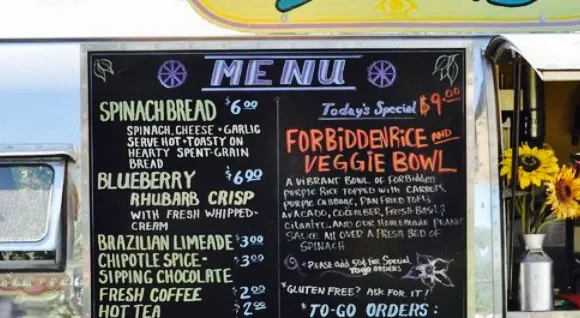 MENU
SPINACH BREAD $6.00
SPINACH, CHEESE + GARLIC
SERVE HOT + TOASTY ON
HEARTY SPENT-GRAIN
BREAD
BLUEBERRY $6.00
RHUBARB CRISP
WITH FRESH WHIPPED-
CREAM
BRAZILIAN LIMEADE $3.00
CHIPOTLE SPICE- $3.00
SIPPING CHOCOLATE
FRESH COFFEE $2.00
HOT TEA $2.00
Today's Special $9.00
FORBIDDEN RICE AND
VEGGIE BOWL
A VIBRANT BOWL OF FORBIDDEN
PURPLE RICE TOPPED WITH CARROTS,
PURPLE CABBAGE, PAN FRIED TOFU,
AVOCADO, CUCUMBER, FRESH BASIL &
CILANTRO, AND OUR HOMEMADE PEANUT
SAUCE ALL OVER A FRESH BED OF
SPINACH
*PLEASE ADD 50¢ FOR SPECIAL
TO-GO ORDERS
*GLUTEN FREE? ASK FOR IT!
*TO-GO ORDERS: